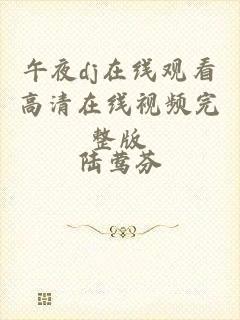 午夜dj在线观看
高清在线视频完
整版
陆莺芬